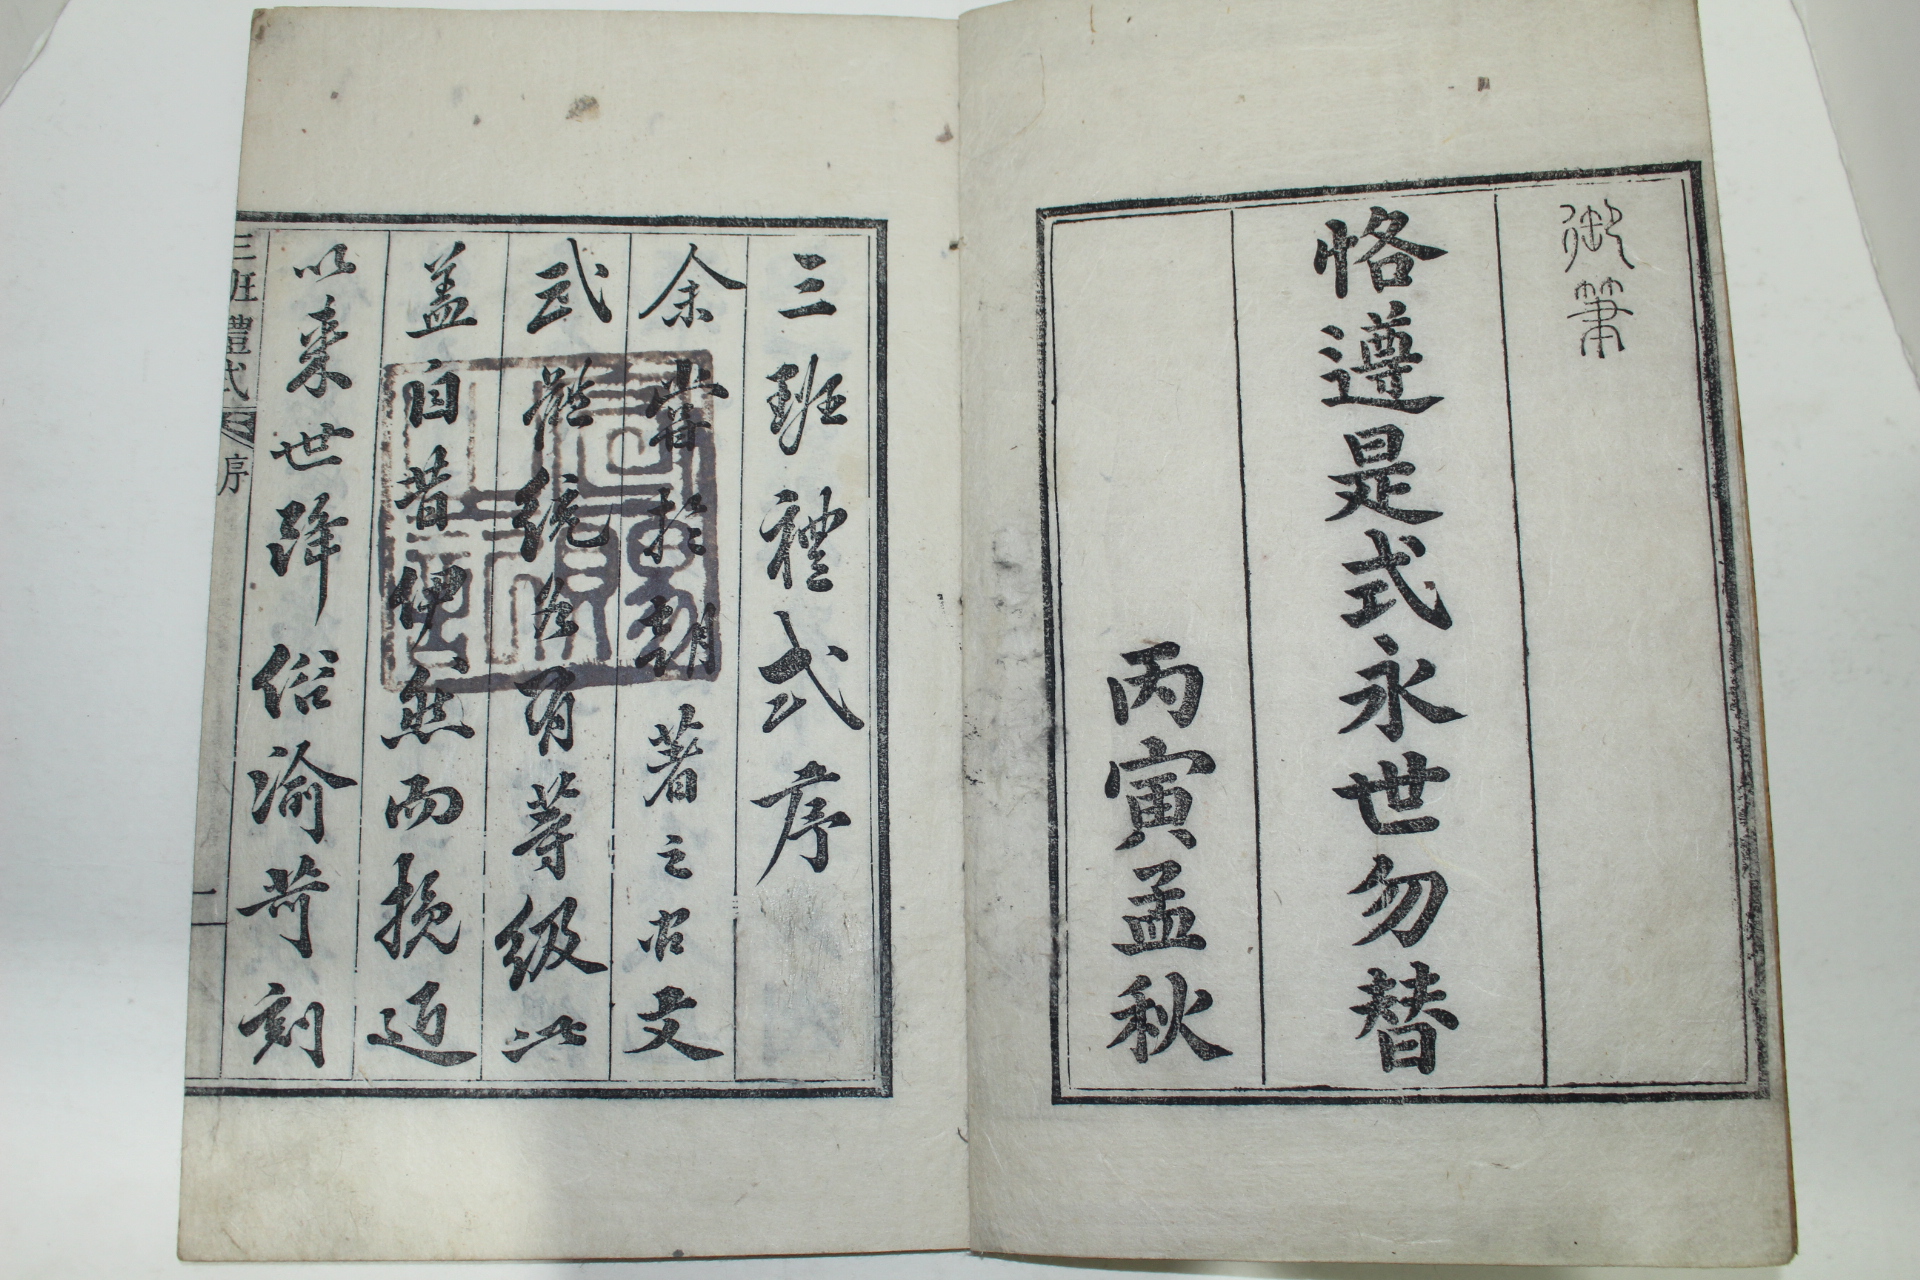 御筆
恪遵是式永世勿替
丙寅孟秋
三班禮式序
余嘗於朝著之文
式體統各有等級此
盖自昔使然而挽近
以來世降俗渝苛刻
三班禮式 序 一